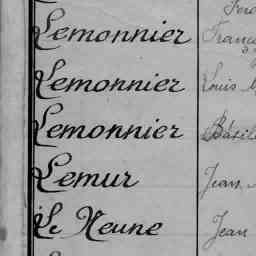 Lemonnier
Lemonnier Louis
Lemonnier
Lemur Jean
Le Neune Jean